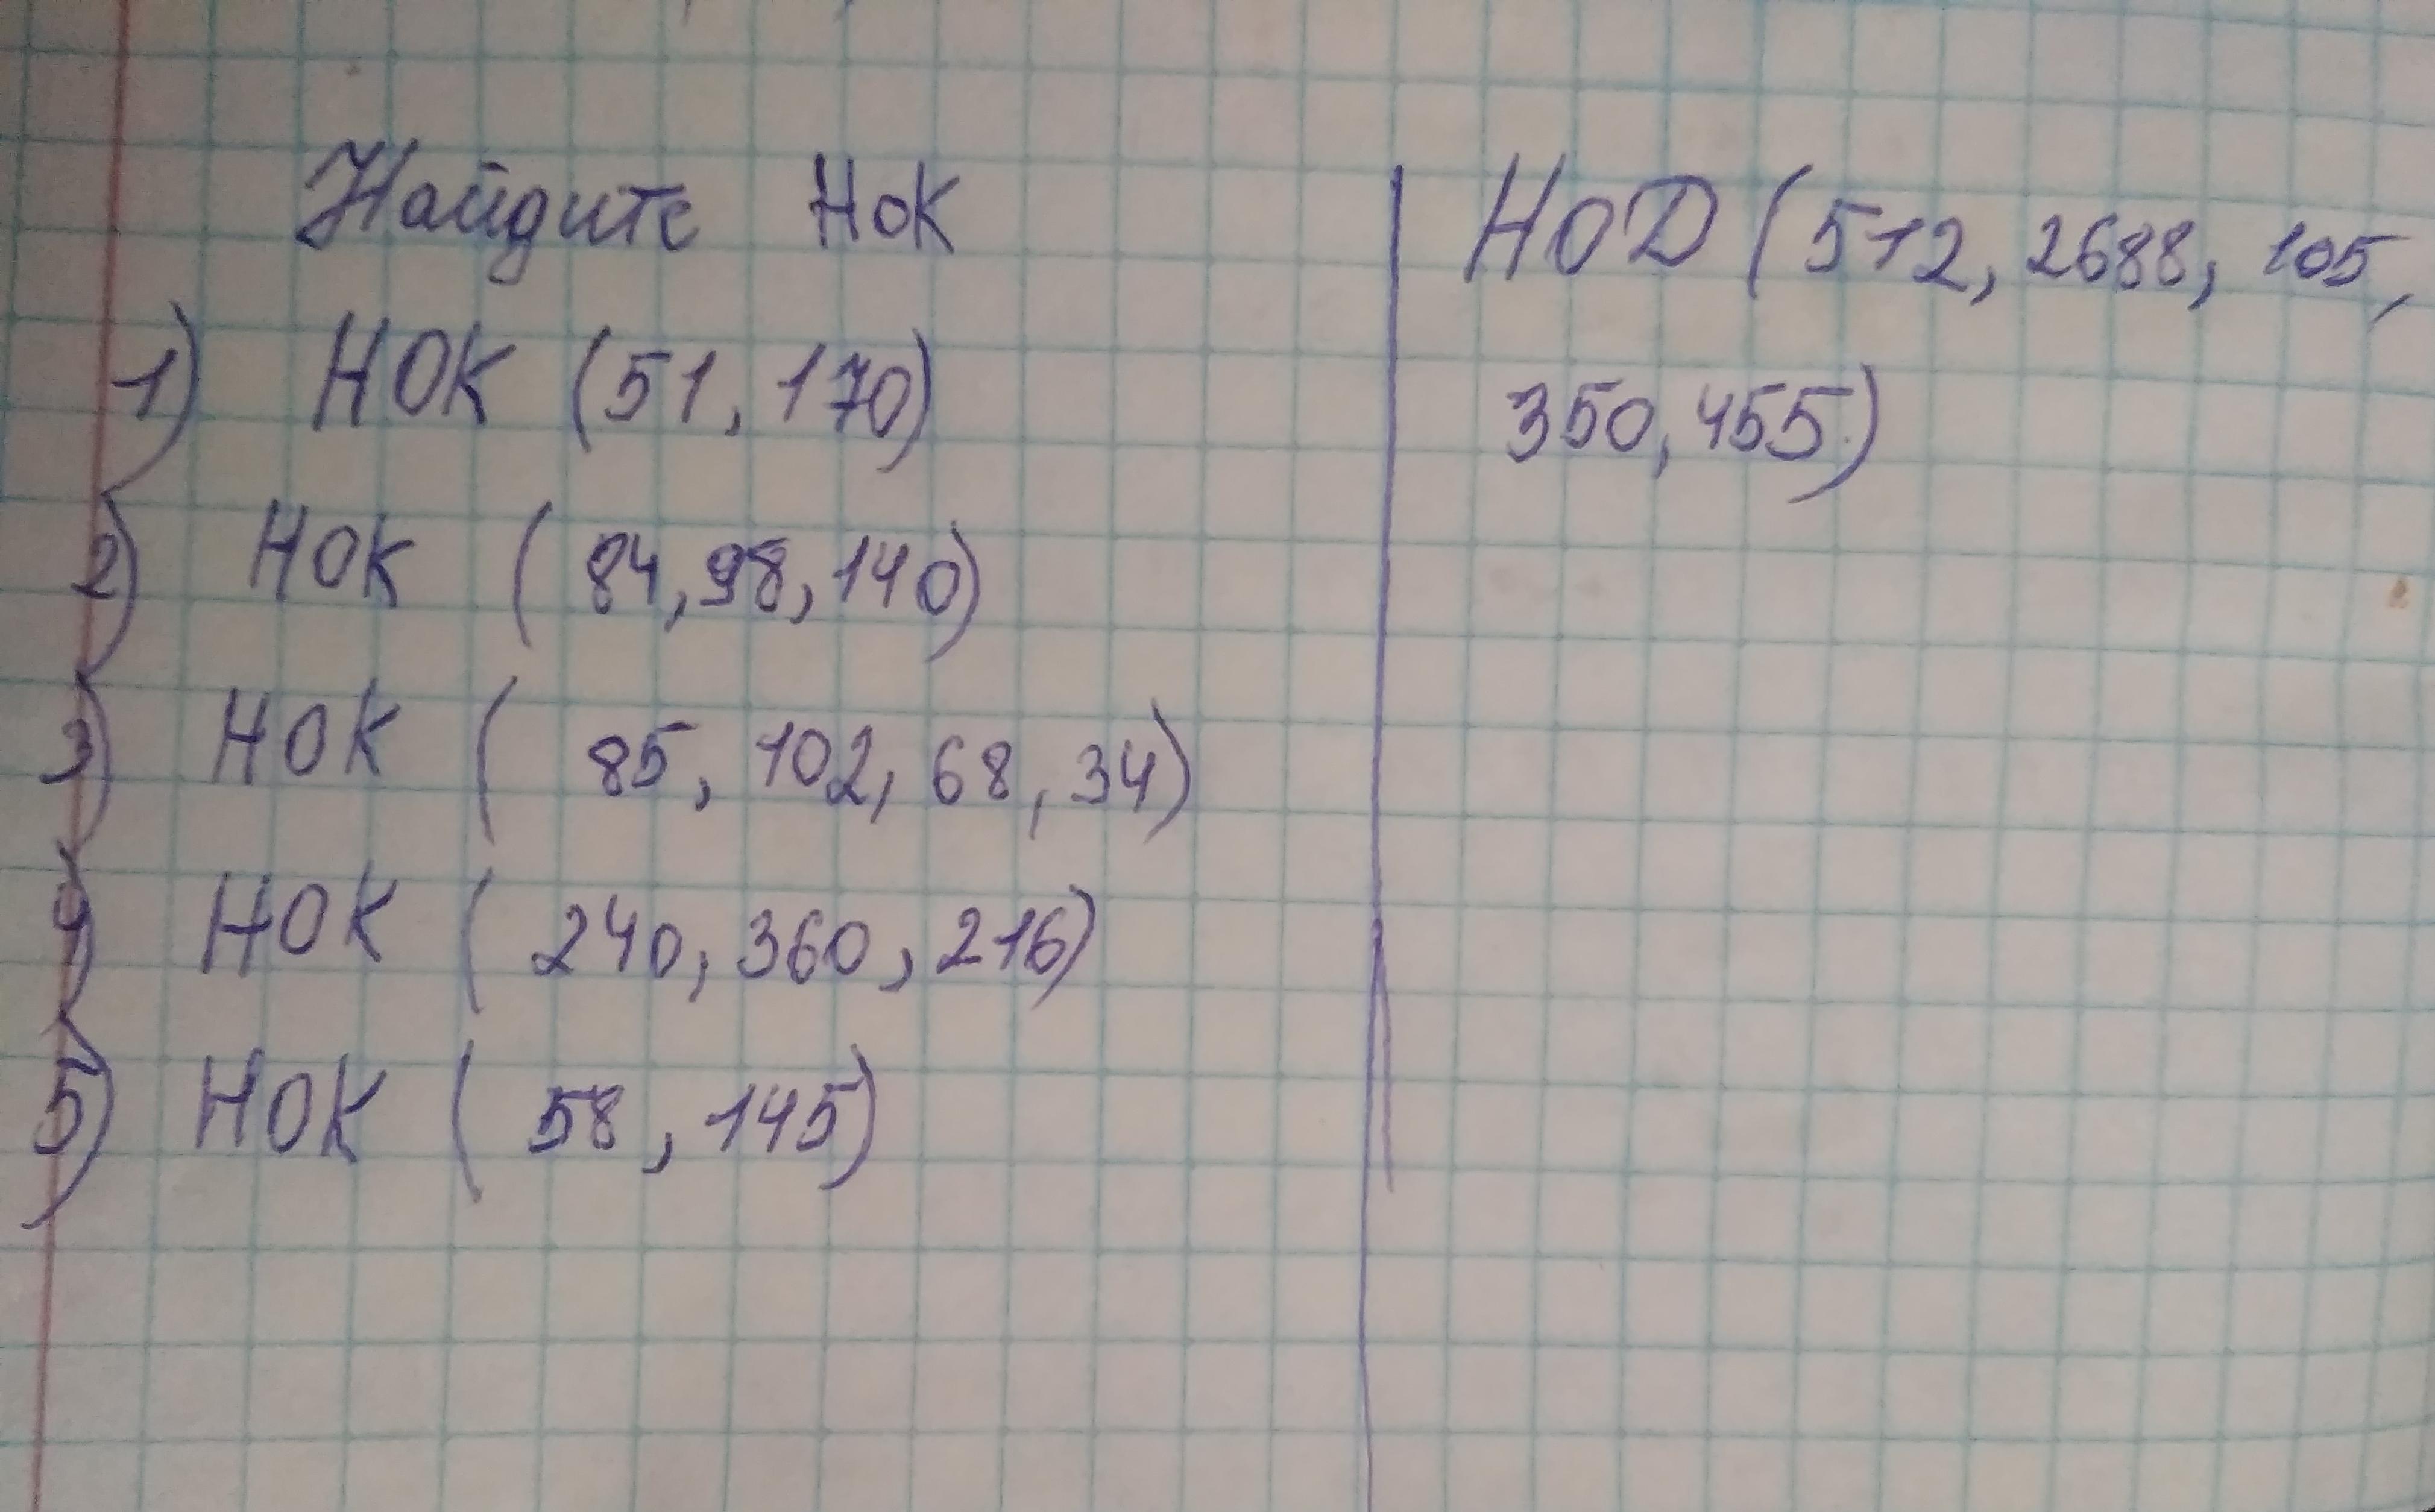 Найдите НОК
1) НОК (51, 170)
2) НОК (84, 98, 140)
3) НОК (85, 102, 68, 34)
4) НОК (240, 360, 216)
5) НОК (58, 145)
НОД (512, 2688, 105,
350, 455)